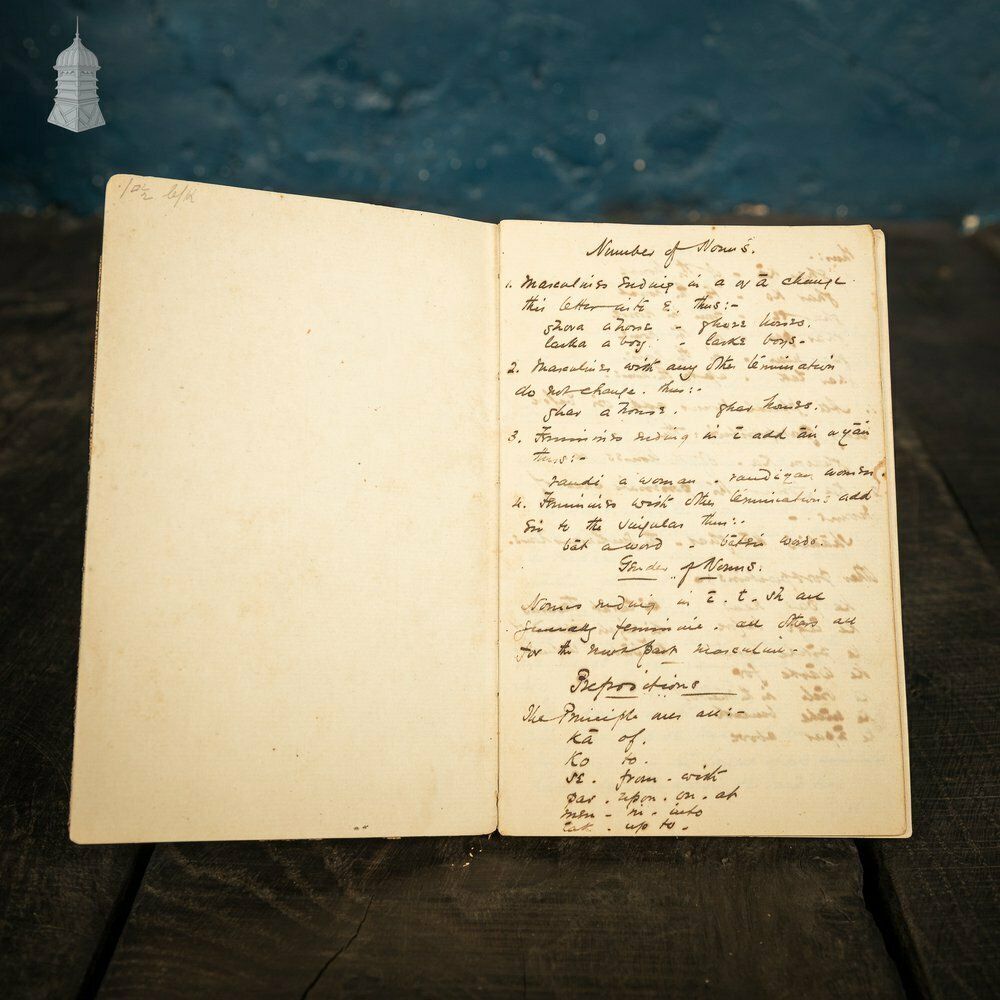 Number of Nouns.
1. Masculines ending in a or ā change
this letter into ē, thus:-
ghora a horse - ghore horses.
larka a boy. - larke boys-
2. Masculines with any other termination
do not change. thus:-
ghar a house. ghar houses.
3. Feminines ending in ī add ān or yān
thus:-
randi a woman - randiyan women.
4. Feminines with other terminations add
en to the singular thus:-
bāt a word - bāten words.
Gender of Nouns.
Nouns ending in ī. t. sh are
generally feminine all others are
for the most part masculine-
Prepositions
The Principle ones are:-
Kā of.
Ko to.
se. from - with
par - upon - on - at
men - in - into
tak - up to -